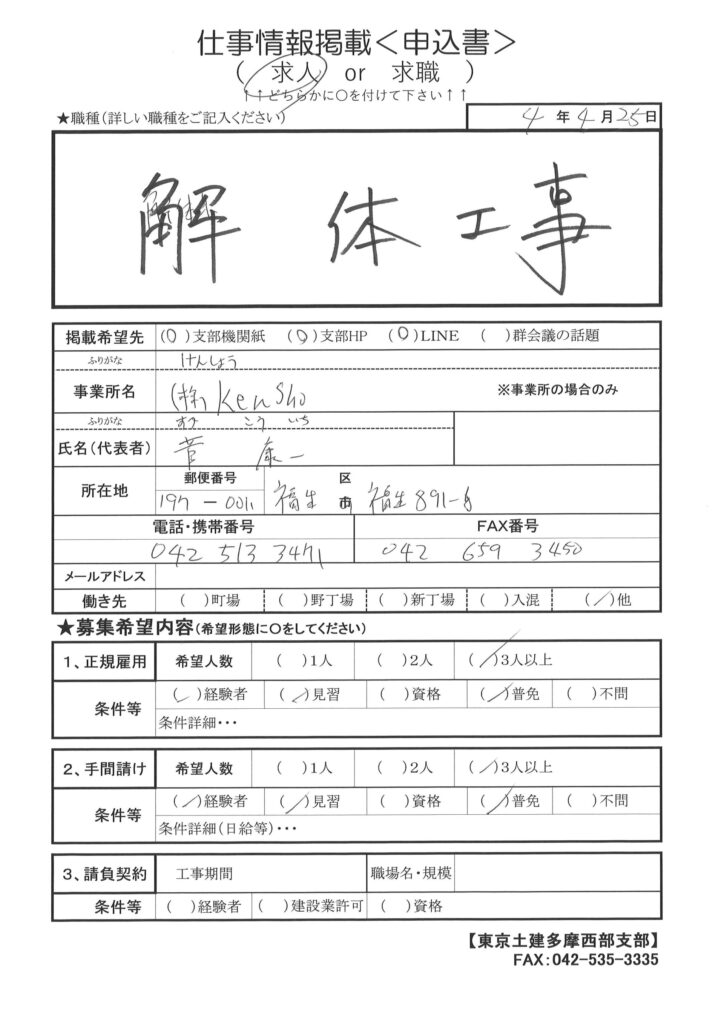 仕事情報掲載<申込書>
( 求人 or 求職 )
↑↑どちらかに○を付けて下さい↑↑
★職種(詳しい職種をご記入ください)
4年4月25日
解体工事
掲載希望先 (○)支部機関紙 (○)支部HP (○)LINE ( )群会議の話題
ふりがな けんしょう
事業所名 (株)KenSho ※事業所の場合のみ
ふりがな すが こういち
氏名(代表者) 菅 康一
所在地 郵便番号 区
197-0011 福生 市 福生891-6
電話・携帯番号 FAX番号
042 513 3471 042 659 3450
メールアドレス
働き先 ( )町場 ( )野丁場 ( )新丁場 ( )入混 (/)他
★募集希望内容(希望形態に○をしてください)
1、正規雇用 希望人数 ( )1人 ( )2人 (/)3人以上
条件等 (/)経験者 (/)見習 ( )資格 (/)普免 ( )不問
条件詳細・・・
2、手間請け 希望人数 ( )1人 ( )2人 (/)3人以上
条件等 (/)経験者 (/)見習 ( )資格 (/)普免 ( )不問
条件詳細(日給等)・・・
3、請負契約 工事期間 職場名・規模
条件等 ( )経験者 ( )建設業許可 ( )資格
【東京土建多摩西部支部】
FAX:042-535-3335